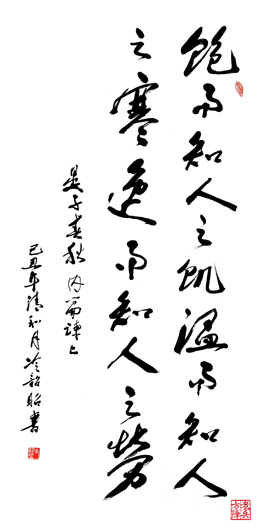 飽而知人之飢温而知人
之寒逸而知人之勞
晏子春秋内篇諫上
己丑年清和月冷韶昭書